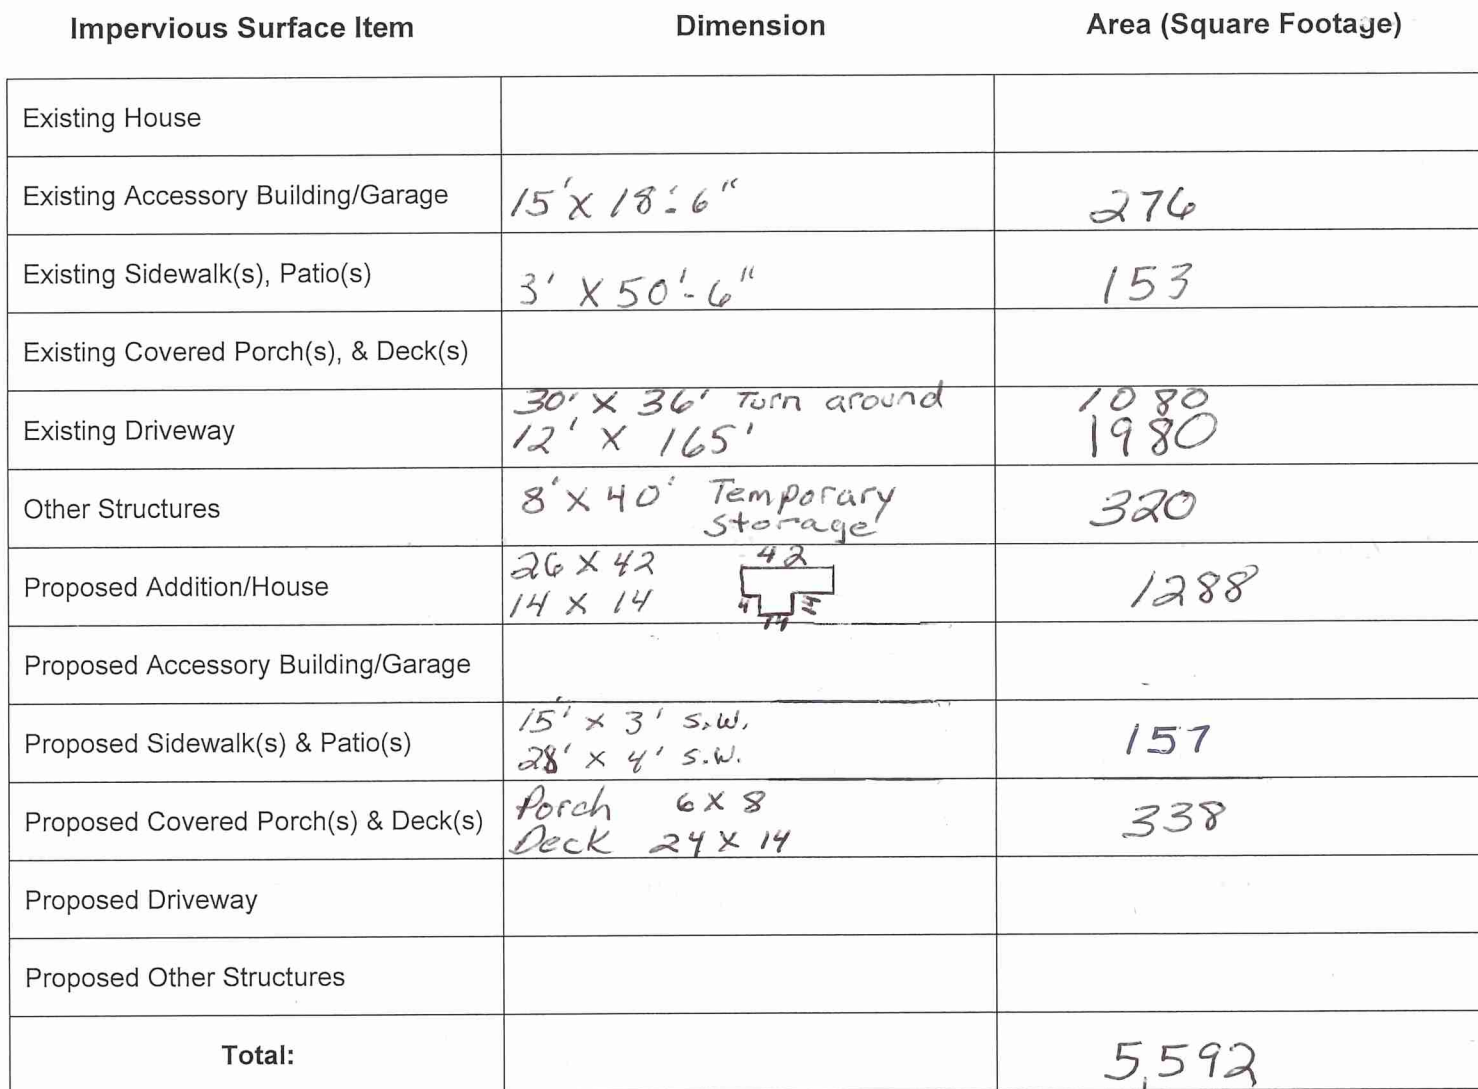 Impervious Surface Item Dimension Area (Square Footage)
Existing House
Existing Accessory Building/Garage 15' X 18'-6" 276
Existing Sidewalk(s), Patio(s) 3' X 50'-6" 153
Existing Covered Porch(s), & Deck(s)
30' X 36' Turn around 1080
Existing Driveway 12' X 165' 1980
Other Structures 8' X 40' Temporary 320
Storage
26 X 42 42
Proposed Addition/House 14 X 14 1288
4
14
Proposed Accessory Building/Garage
15' x 3' s.w.
Proposed Sidewalk(s) & Patio(s) 157
28' x 4' s.w.
Porch 6 X 8
Proposed Covered Porch(s) & Deck(s) 338
Deck 24 X 14
Proposed Driveway
Proposed Other Structures
Total: 5,592